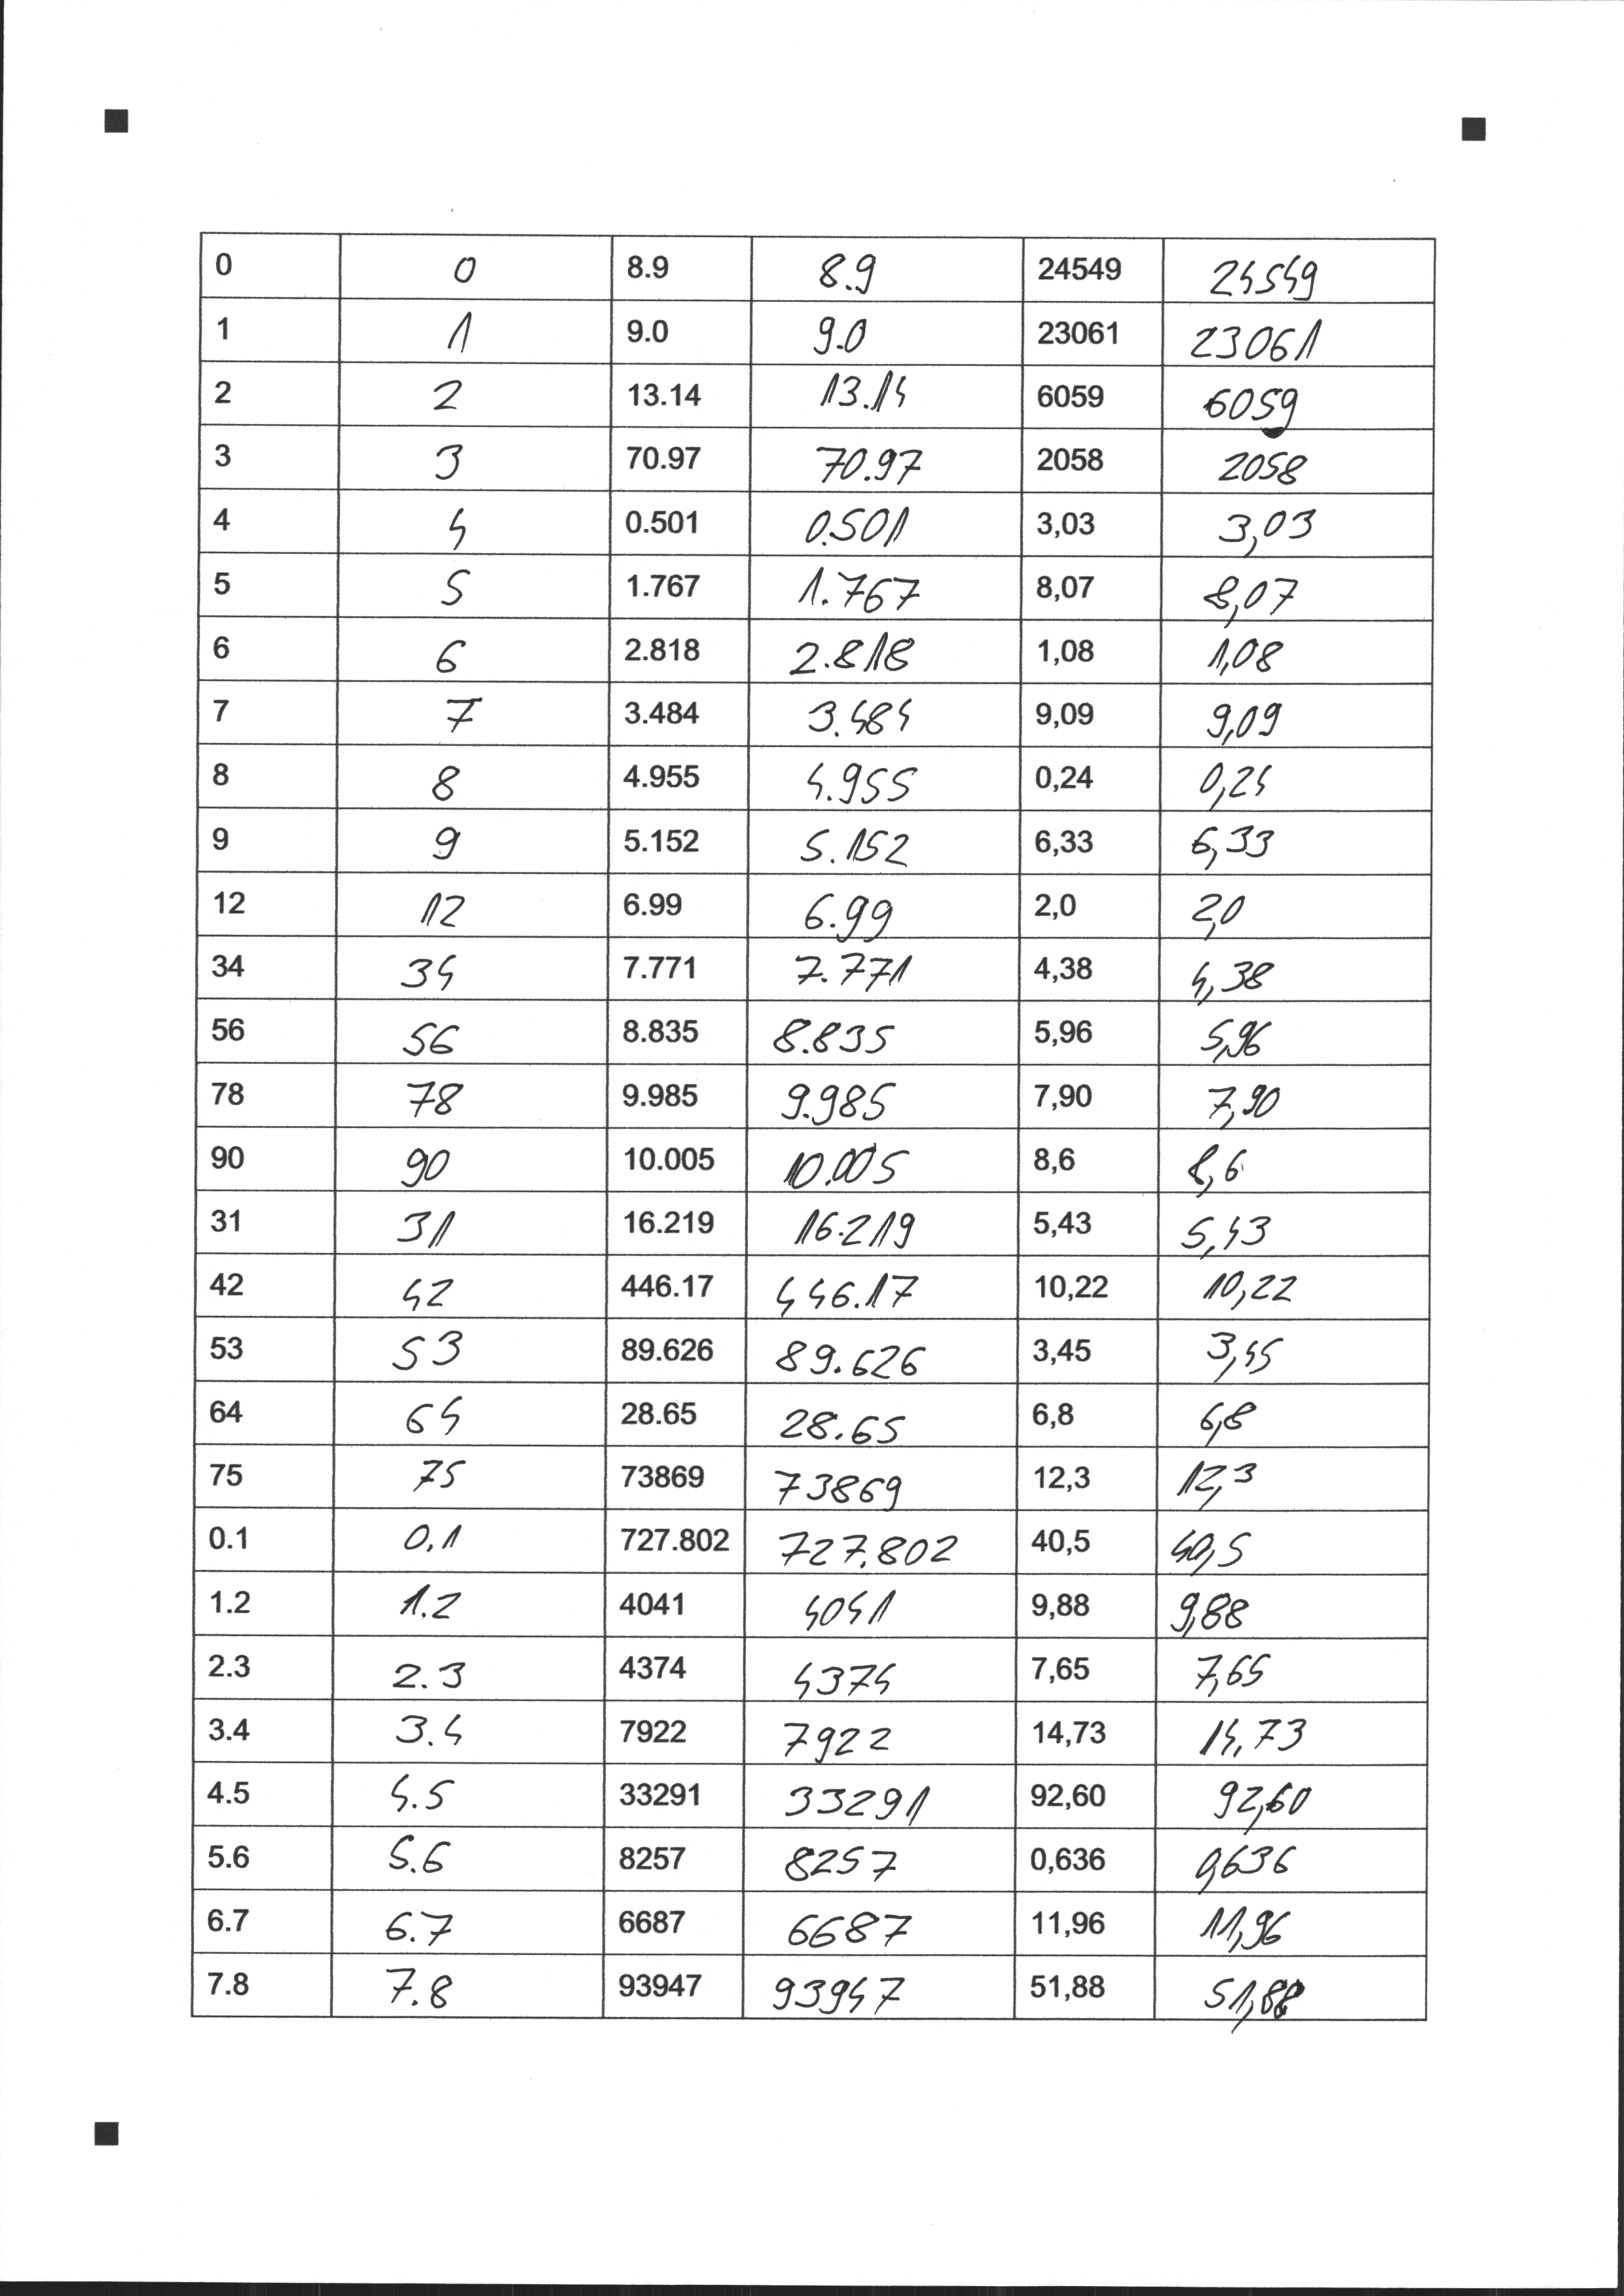 0 0 8.9 8.9 24549 24549
1 1 9.0 9.0 23061 23061
2 2 13.14 13.14 6059 6059
3 3 70.97 70.97 2058 2058
4 4 0.501 0.501 3,03 3,03
5 5 1.767 1.767 8,07 8,07
6 6 2.818 2.818 1,08 1,08
7 7 3.484 3.484 9,09 9,09
8 8 4.955 4.955 0,24 0,24
9 9 5.152 5.152 6,33 6,33
12 12 6.99 6.99 2,0 2,0
34 34 7.771 7.771 4,38 4,38
56 56 8.835 8.835 5,96 5,96
78 78 9.985 9.985 7,90 7,90
90 90 10.005 10.005 8,6 8,6
31 31 16.219 16.219 5,43 5,43
42 42 446.17 446.17 10,22 10,22
53 53 89.626 89.626 3,45 3,45
64 64 28.65 28.65 6,8 6,8
75 75 73869 73869 12,3 12,3
0.1 0,1 727.802 727.802 40,5 40,5
1.2 1.2 4041 4041 9,88 9,88
2.3 2.3 4374 4374 7,65 7,65
3.4 3.4 7922 7922 14,73 14,73
4.5 4.5 33291 33291 92,60 92,60
5.6 5.6 8257 8257 0,636 0,636
6.7 6.7 6687 6687 11,96 11,96
7.8 7.8 93947 93947 51,88 51,88